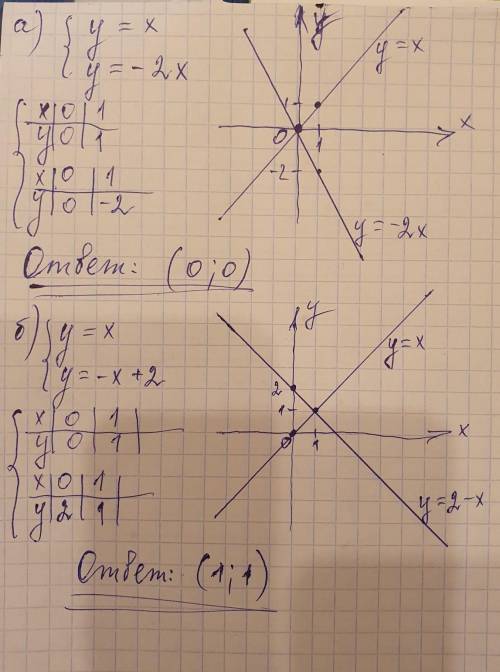 а) { y = x
y = -2x
x | 0 | 1
y | 0 | 1
x | 0 | 1
y | 0 | -2
y
y=x
1
0
1
x
-2
y=-2x
Ответ: (0;0)
б) { y = x
y = -x+2
x | 0 | 1 |
y | 0 | 1 |
x | 0 | 1 |
y | 2 | 1 |
y
y=x
2
1
0
1
x
y=2-x
Ответ: (1;1)